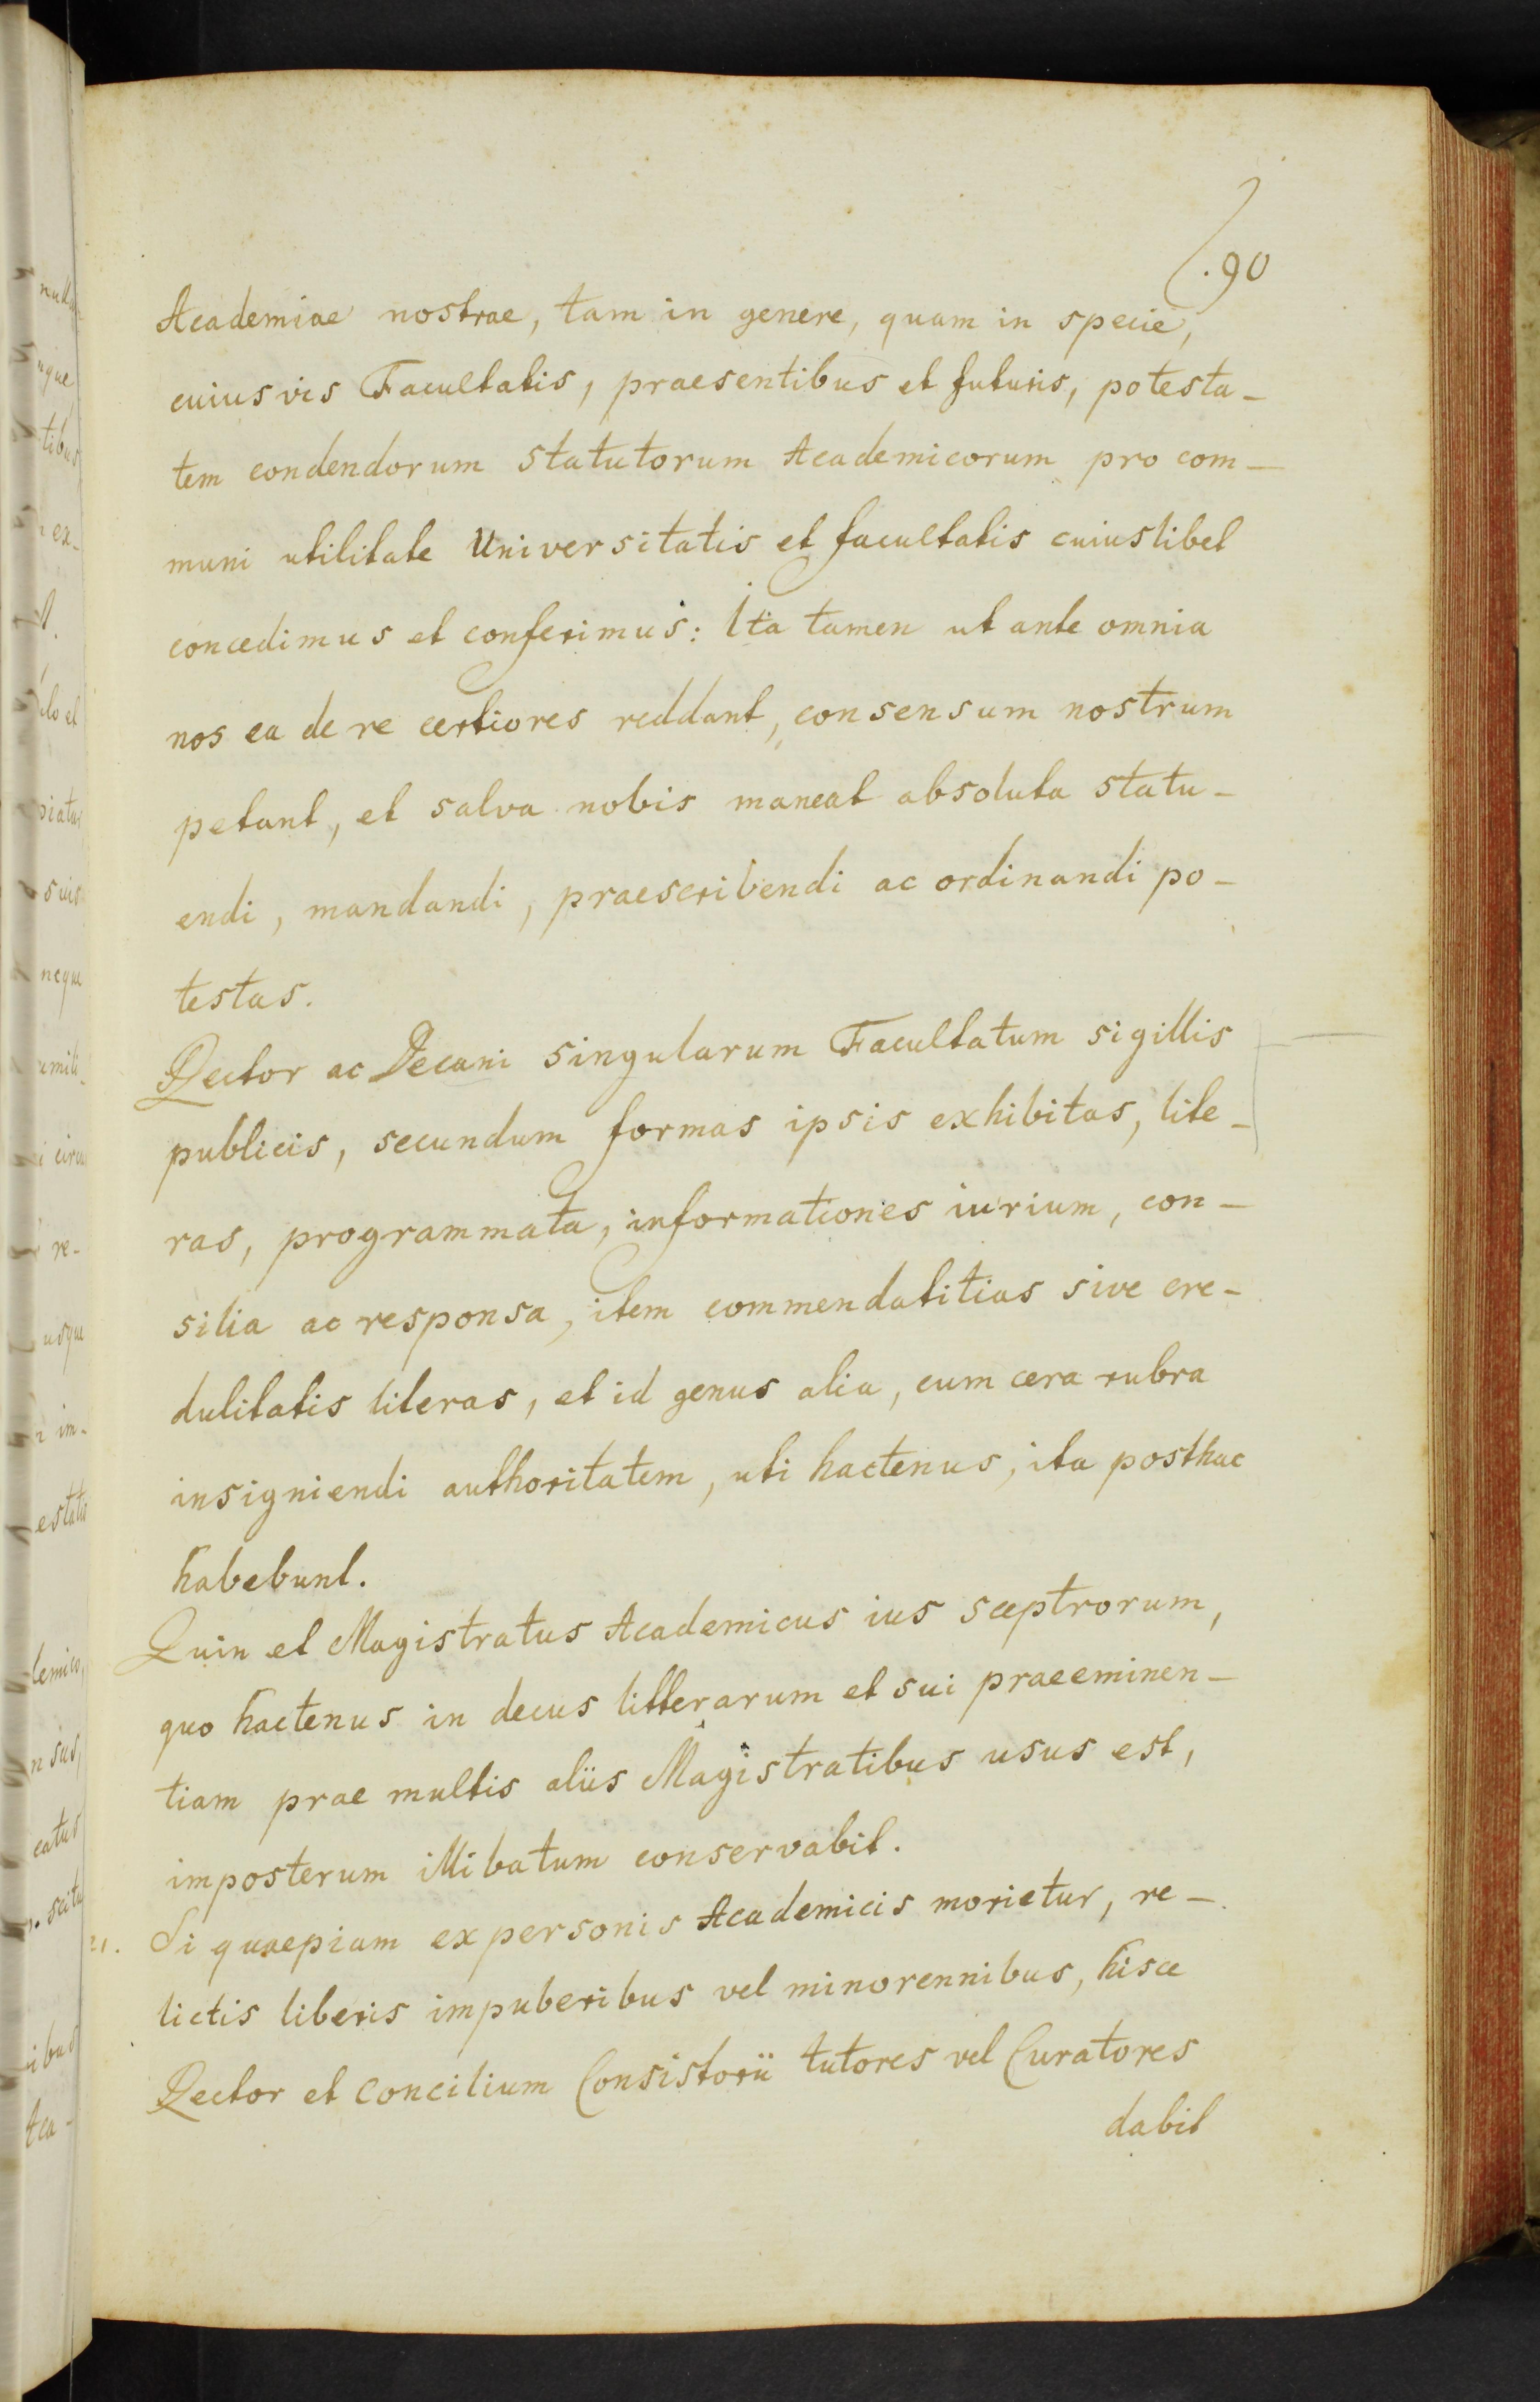 .90
Academiae nostrae, tam in genere, quam in specie,
cuiusvis Facultatis, praesentibus et futuris, potesta-
tem condendorum statutorum Academicorum pro com-
muni utilitate Universitatis et facultatis cuiuslibet
concedimus et conferimus: Ita tamen ut ante omnia
nos ea de re certiores reddant, consensum nostrum
petant, et salva nobis maneat absoluta statu-
endi, mandandi, praescribendi ac ordinandi po-
testas.
Rector ac Decani singularum Facultatum sigillis
publicis, secundum formas ipsis exhibitas, lite-
ras, programmata, informationes iurium, con-
silia ac responsa, item commendatitias sive cre-
dulitatis literas, et id genus alia, cum cera rubra
insigniendi authoritatem, uti hactenus, ita posthac
habebunt.
Quin et Magistratus Academicus ius sceptrorum,
quo hactenus in decus litterarum et sui praeeminen-
tiam prae multis aliis Magistratibus usus est,
imposterum illibatum conservabit.
21. Si quaepiam ex personis Academicis morietur, re-
lictis liberis impuberibus vel minorennibus, hisce
Rector et Concilium Consistorii tutores vel Curatores
dabit